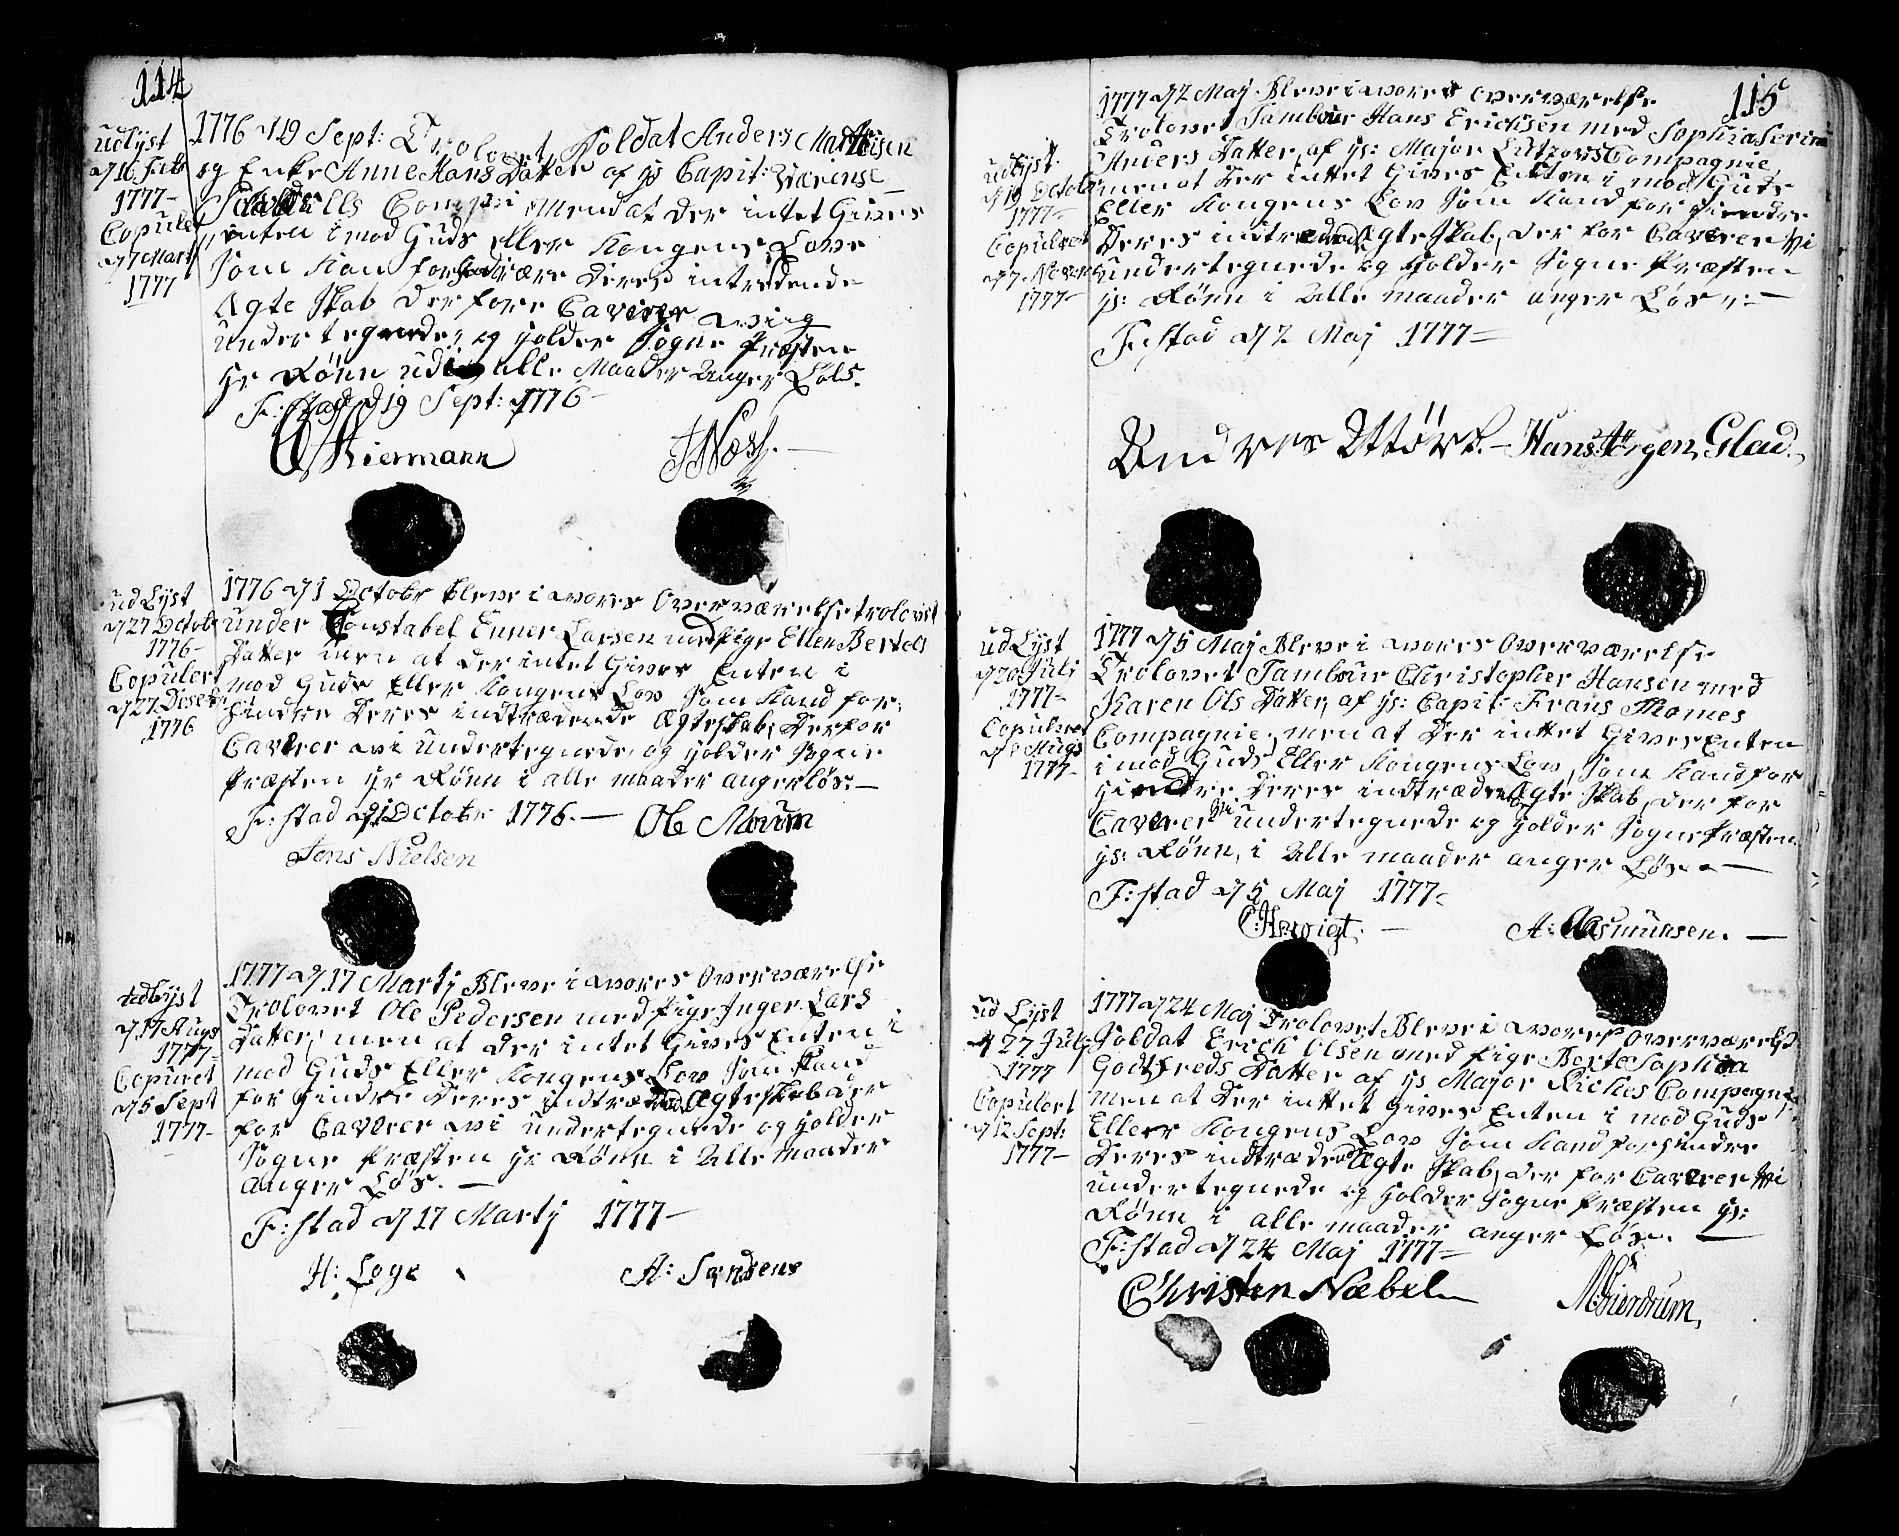 114
udlyst
d 16 Febr
1777-
Copuleret
d 7 Martj
1777
1776 d 19 Sept: Trolovet Soldat Anders Mathisen
og Enke Anne Hans Datter af hr Capit:
Comp: Men at der intet Gives
enten imod Guds eller Kongens Love
som Kan forhindre være Deres intredende
Ægte Skab derfore Caverer wi
undertegnede, og holder Sogne Præsten
Hr Rönn udi alle Maader Anger Løs.
F: stad d 19 Sept: 1776-
Kiermann
J Næss.-
ud Lyst
d 27 Octobr
1776-
Copulert
d 27 Desebr
1776
1776 d 1 Octobr bleve i wores Overværelse trolovet
under Constabel Enner Larsen med Pige Ellen Bertels
Datter men at der intet Gives Enten i
mod Guds Eller Kongens Lov som Kand for-
hindre Deres indtrædende Ægteskab, Derfor
Caverer wi undertegnede, og holder Sogne
Præsten Hr Rönn i alle maader angerløs.-
F: stad d 1 Octobr 1776.- Ole Morum
Jens Nielsen
udLyst
d 17 Augs
1777-
Copuret
d 5 Sept
1777-
1777 d 17 Martj Bleve i wores Overværelse
Trolovet Ole Pedersen med Pige Inger Lars
Datter, men at der intet Gives Enten i
mod Guds Eller Kongens Lov som Kand
for hindre Deres indtrædende Ægteskab der
for Caverer wi undertegnede og holder
Sogne Præsten Hr Rönn i Alle Maader
anger Løs.-
F: stad d 17 Martj 1777-
H: Loge
A: Jendsens
115
udlyst.
d 19 Octobr
1777-
Copulret
d 7 Novbr
1777-
1777 d 2 Maj Bleve i wores overværelse
Trolovet Tambour Hans Erichsen med Sophia Serina
Anders Datter, af hr: Major Lütrovs Compagnie,
men at Der intet Gives Enten i mod Guds
Eller Kongens Lov som Kand for hindre
Deres indtrædende Ægte Skab, der for Caverer Wi
undertegnede og holder Sogne Præsten
hr: Rönn i Alle maader anger Løs.-
F: stad d 2 Maj 1777-
Andres Ottørt.- Hans Jørgen Glad.
ud Lyst
d 20 Juli
1777-
Copuleret
d 8 Augs
1777-
1777 d 5 Maj Bleve i wores Overværelse
Trolovet Tambour Christopher Hansen med
Karen Ols Datter, af hr: Capit: Frans Thomes
Compagnie, men at Der intet Gives Enten
i mod Guds Eller Kongens Lov, som Kand for
hindre Deres indtrædende Ægte Skab, der for
Caverer Wi undertegnede og holder Sogne Præsten
hr: Rönn, i Alle maader anger Løs.-
F: stad d 5 Maj 1777-
C: Herwigt.-
A: Aasmundsen.-
ud Lyst
d 27 Juli
1777
Copulert
d 12 Sept:
1777-
1777 d 24 Maj Trolovet Bleve i wores Overværelse
Soldat Erich Olsen med Pige Berte Sophia
Godtfreds Datter af hr Major Riches Compagnie
men at Der intet Gives Enten i mod Guds
Eller Kongens Lov Som Kand forhindre
Deres indtrædende Ægte Skab, der for Caverer Wi
undertegnede og holder Sogne Præsten hr:
Rönn i alle maader anger Løs.
F: stad d 24 Maj 1777-
Christen Næbel